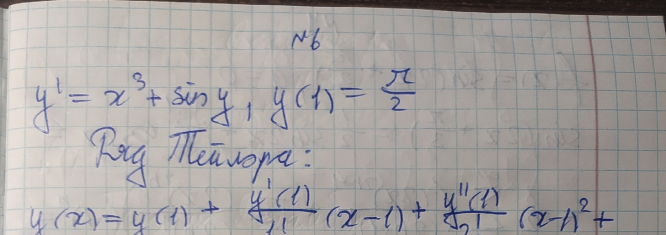 №6
y' = x³ + sin y, y(1) = π/2
Ряд Тейлора:
y(x) = y(1) + y'(1)/1! (x-1) + y''(1)/2! (x-1)² +